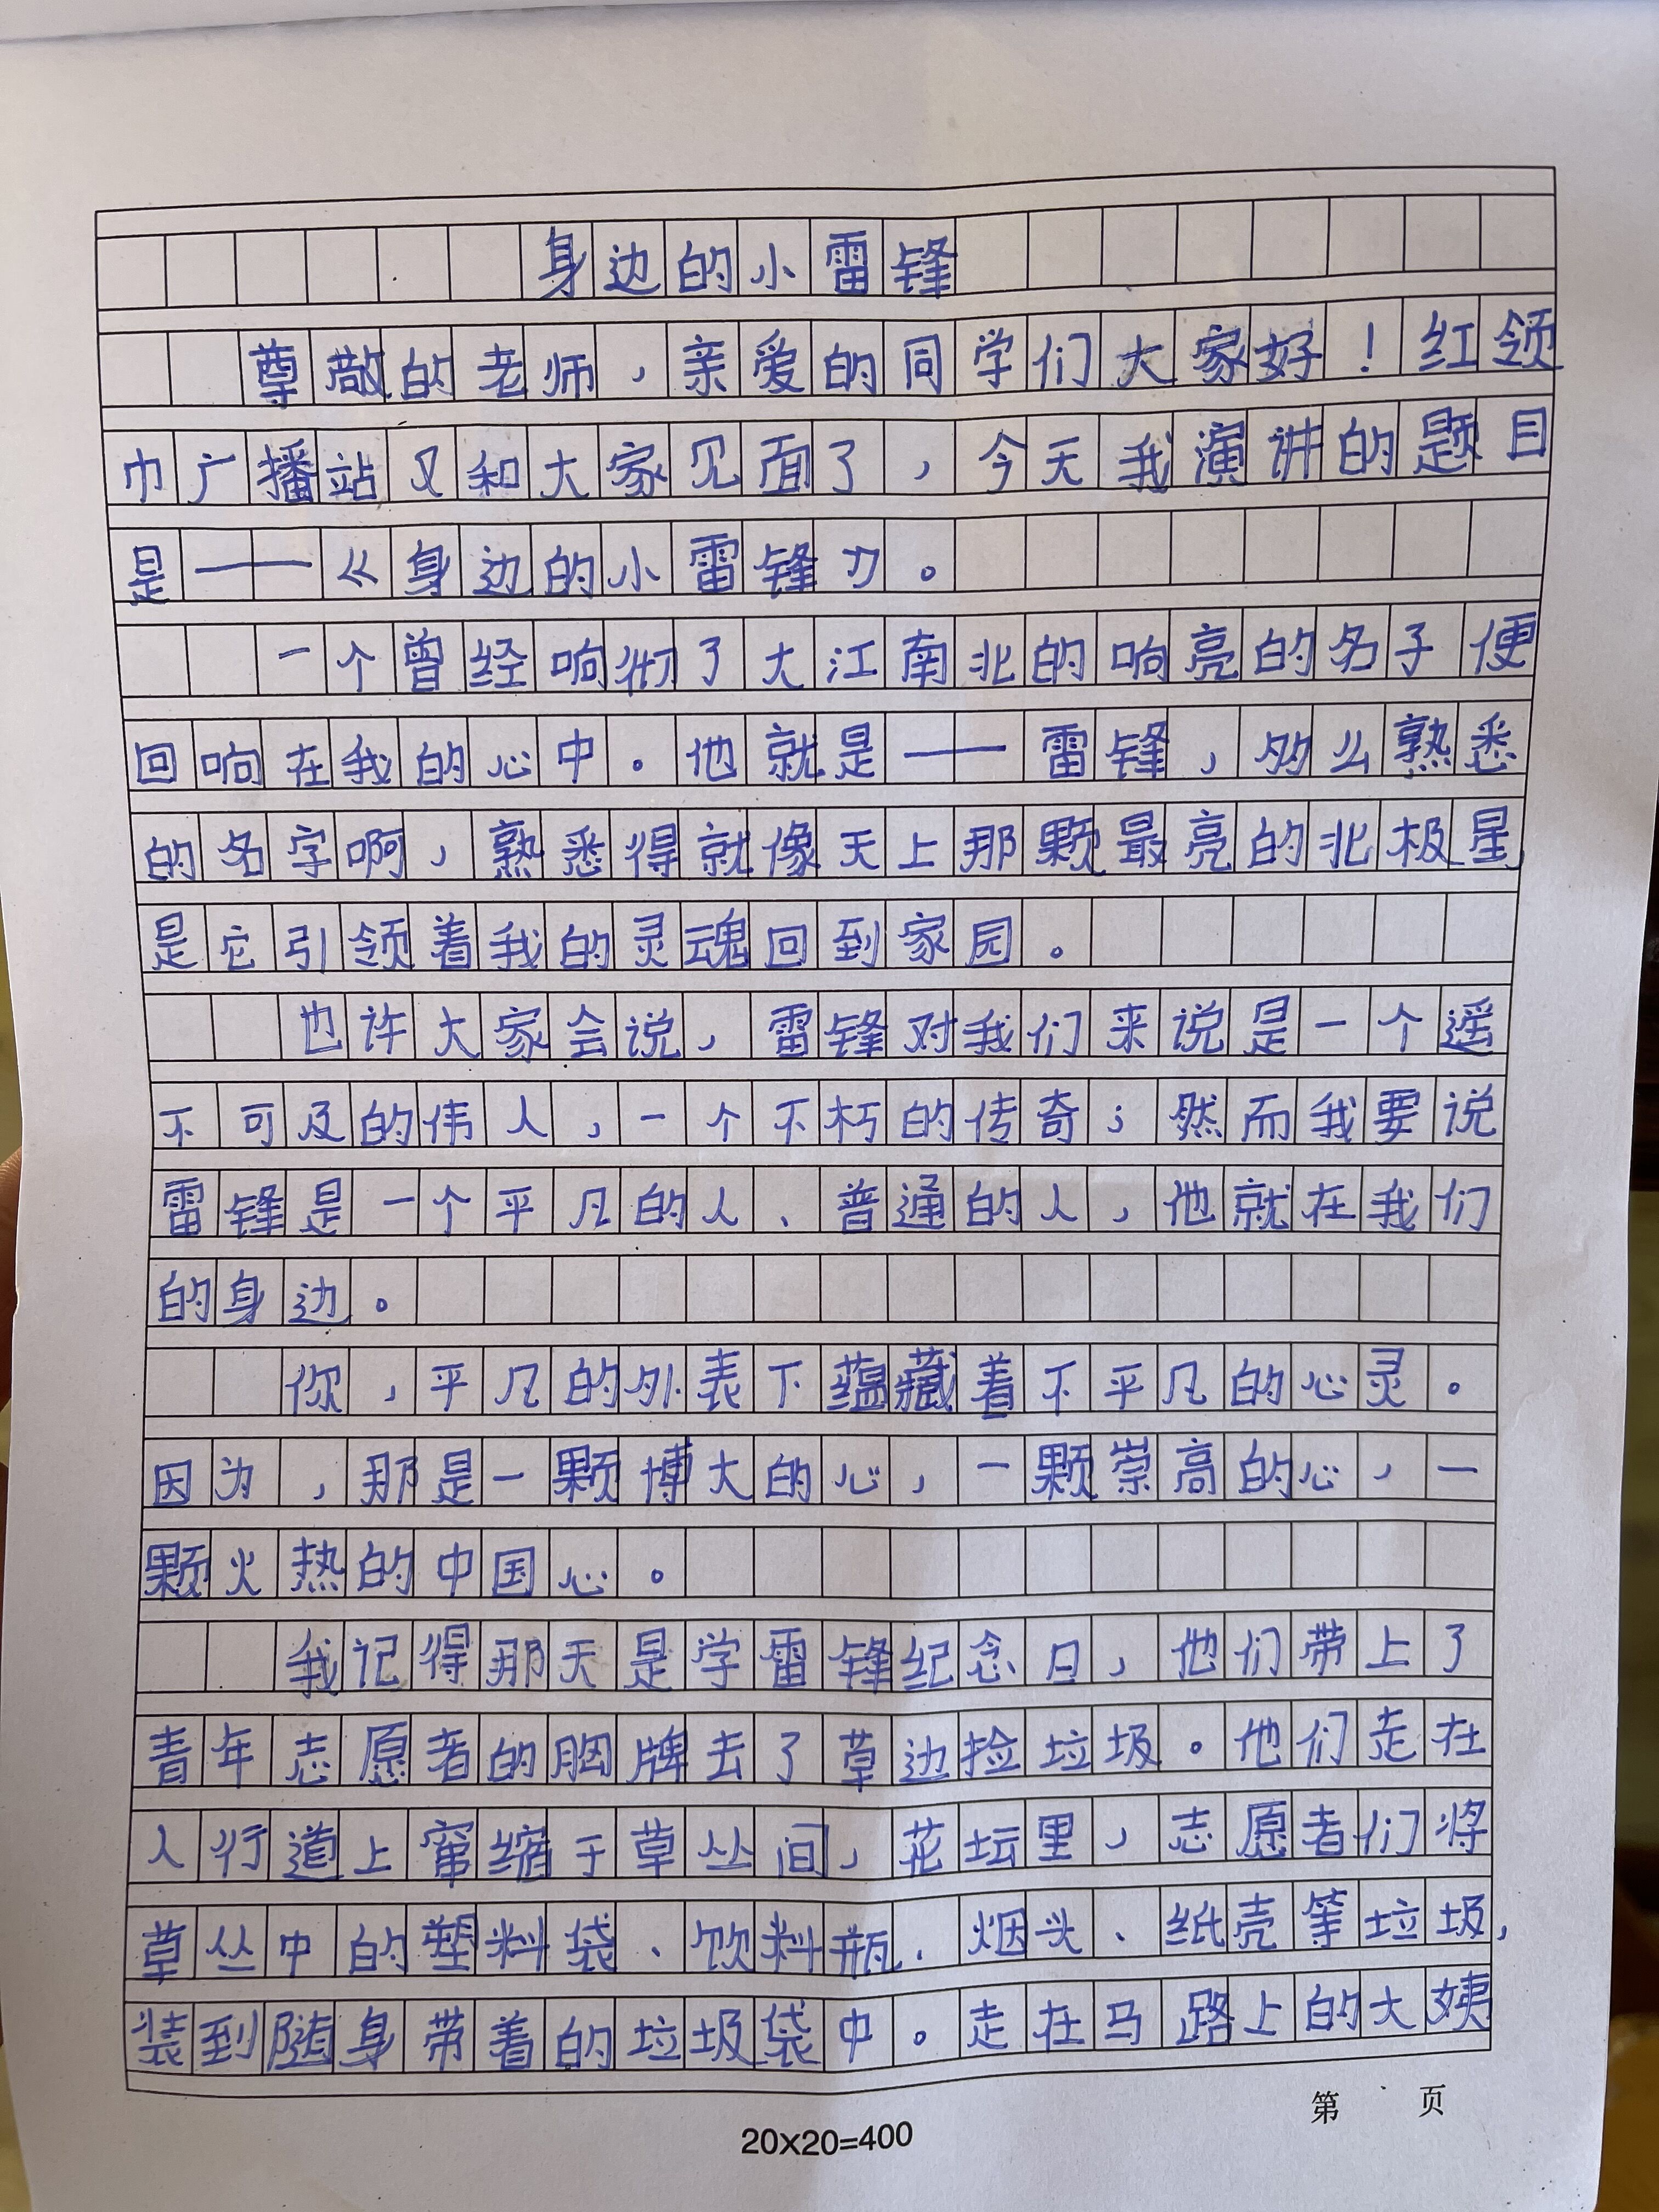 身边的小雷锋
尊敬的老师，亲爱的同学们大家好！红领
巾广播站又和大家见面了，今天我演讲的题目
是——《身边的小雷锋》。
一个曾经响彻了大江南北的响亮的名子便
回响在我的心中。他就是——雷锋，多么熟悉
的名字啊，熟悉得就像天上那颗最亮的北极星，
是它引领着我的灵魂回到家园。
也许大家会说，雷锋对我们来说是一个遥
不可及的伟人，一个不朽的传奇；然而我要说
雷锋是一个平凡的人、普通的人，他就在我们
的身边。
你，平凡的外表下蕴藏着不平凡的心灵。
因为，那是一颗博大的心，一颗崇高的心，一
颗火热的中国心。
我记得那天是学雷锋纪念日，他们带上了
青年志愿者的胸牌去了草边捡垃圾。他们走在
人行道上窜缩于草丛间，花坛里，志愿者们将
草丛中的塑料袋、饮料瓶、烟头、纸壳等垃圾，
装到随身带着的垃圾袋中。走在马路上的大姨
第 页
20X20=400